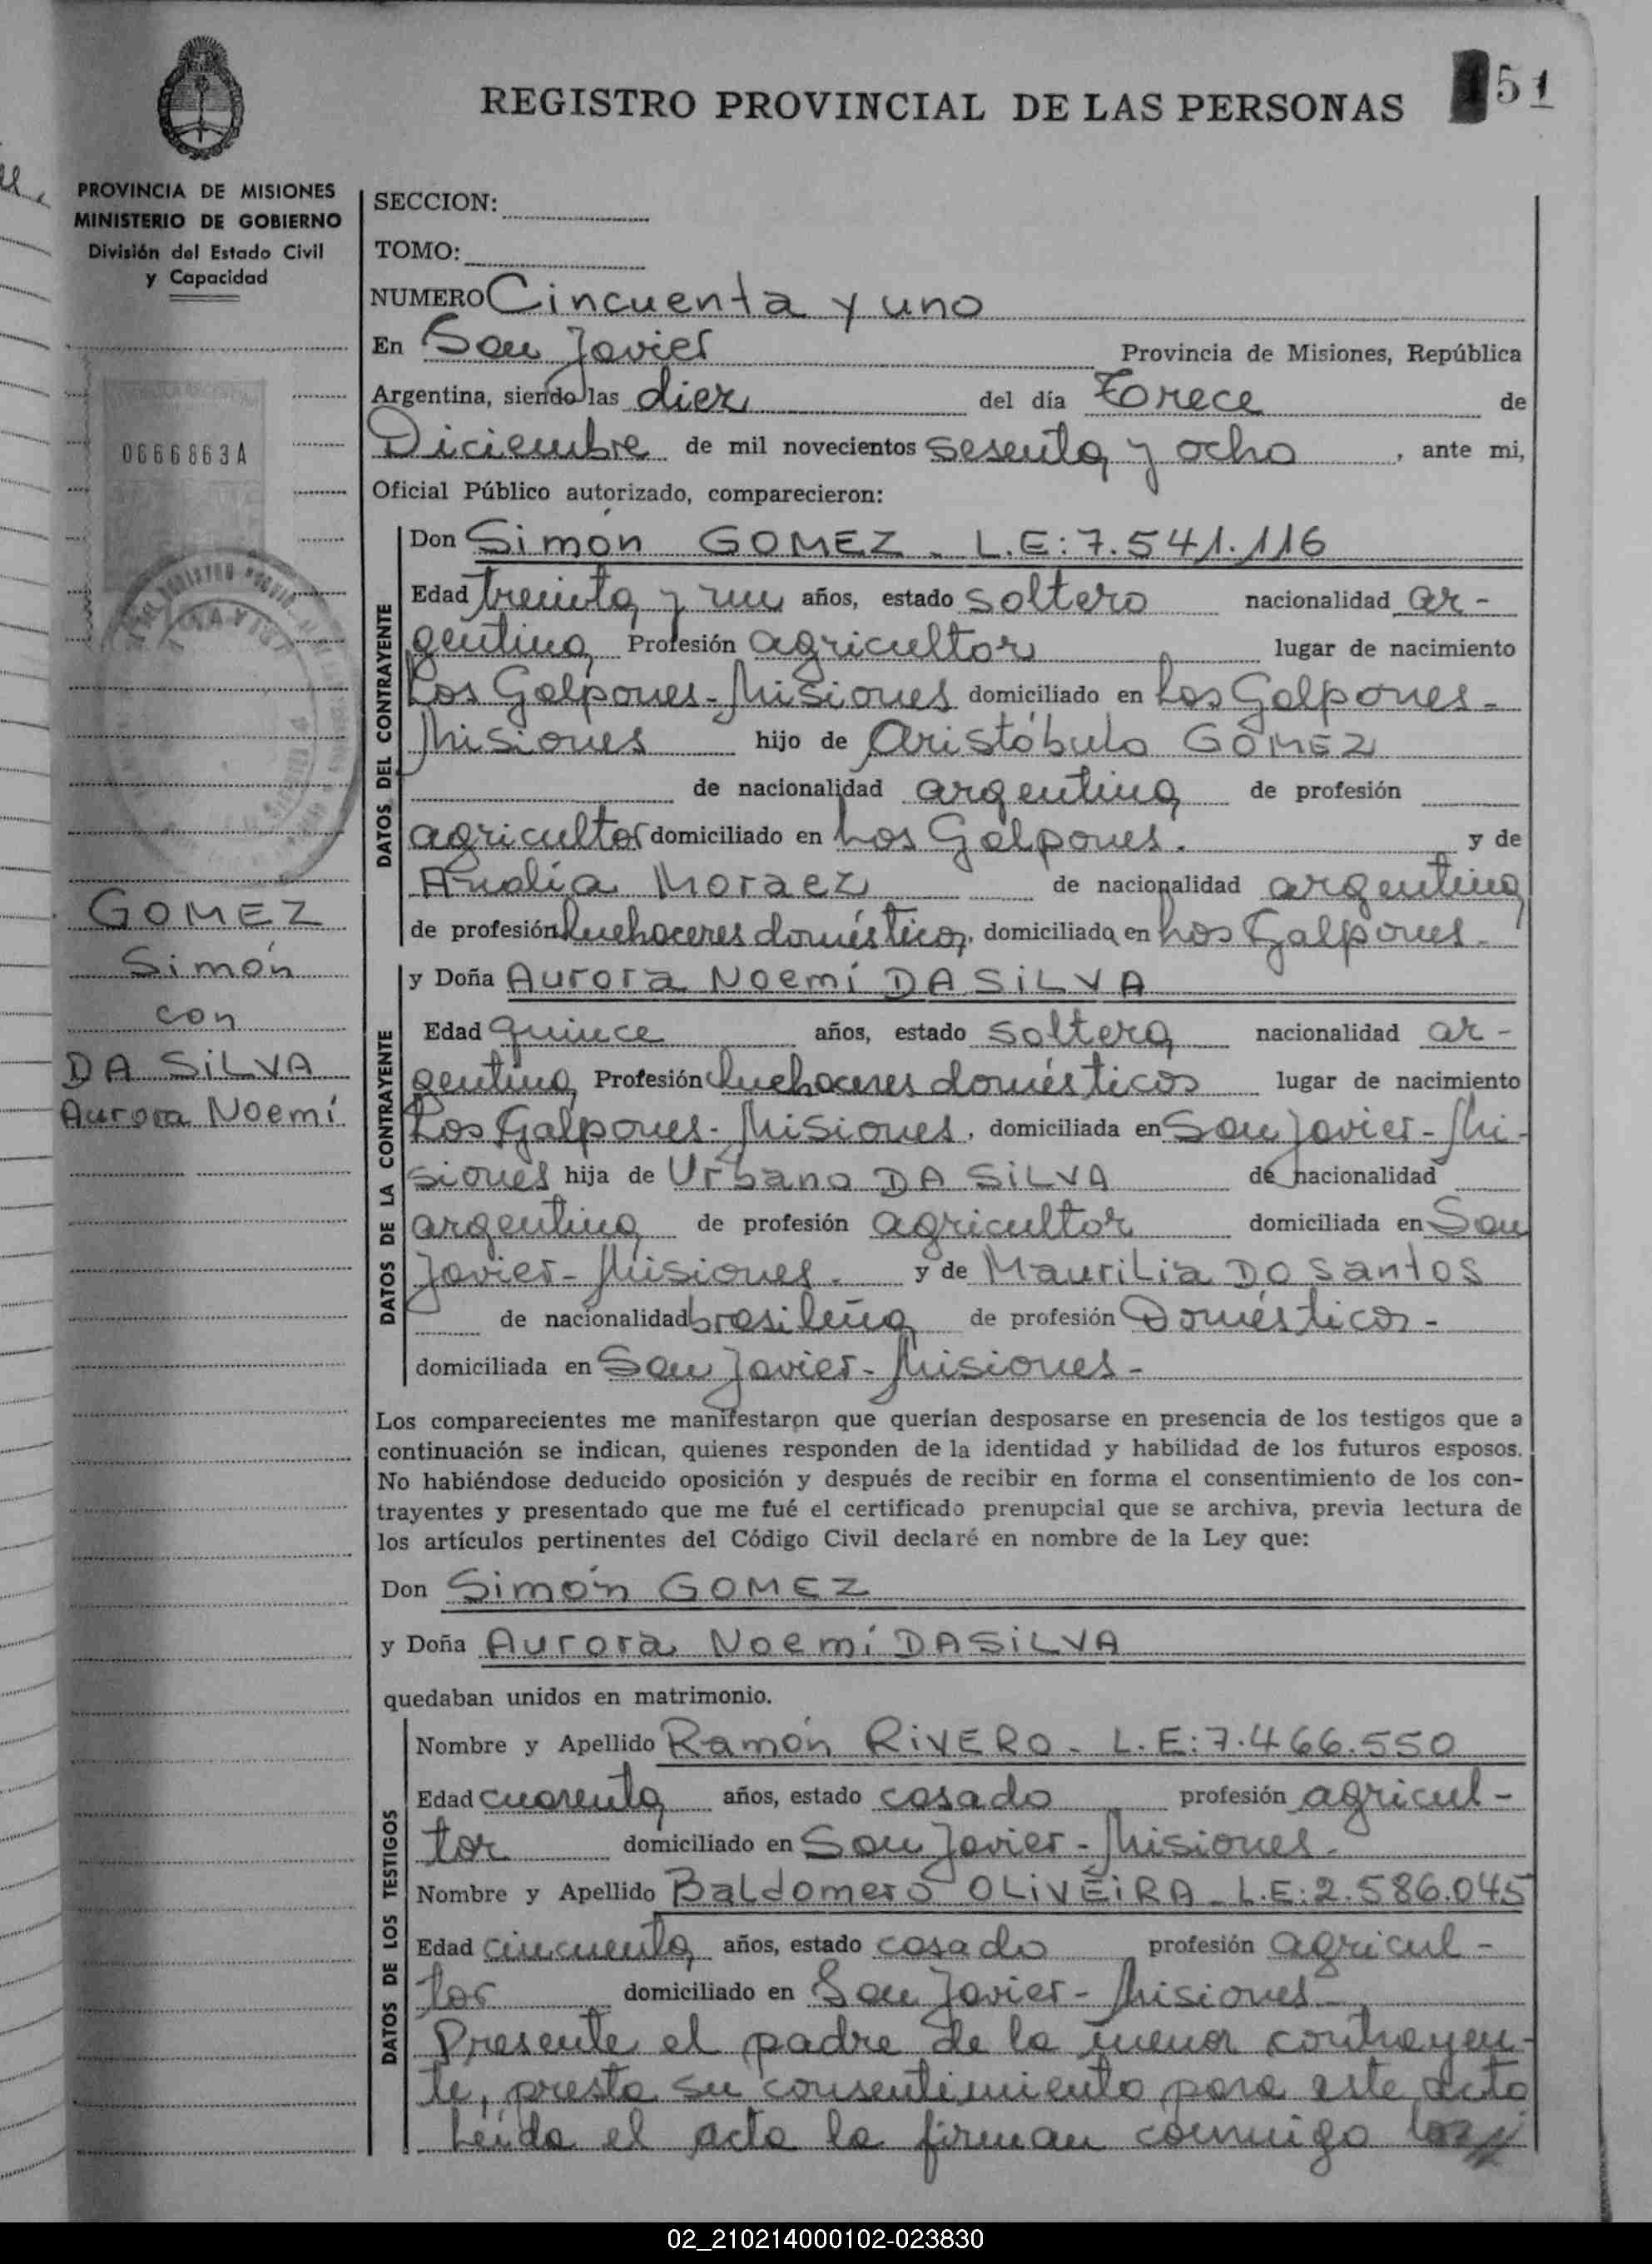 REGISTRO PROVINCIAL DE LAS PERSONAS
51
PROVINCIA DE MISIONES
MINISTERIO DE GOBIERNO
División del Estado Civil
y Capacidad
0666863A
GOMEZ
Simón
con
DA SiLVA
Aurora Noemí
SECCION:
TOMO:
NUMERO Cincuenta y uno
En San Javier Provincia de Misiones, República
Argentina, siendo las diez del día trece de
Diciembre de mil novecientos sesenta y ocho, ante mi,
Oficial Público autorizado, comparecieron:
DATOS DEL CONTRAYENTE
Don Simón GOMEZ - L.E: 7.541.116
Edad treinta y un años, estado soltero nacionalidad ar-
gentina Profesión agricultor lugar de nacimiento
Los Galpones - Misiones domiciliado en Los Galpones -
Misiones hijo de Aristóbulo GOMEZ
de nacionalidad argentina de profesión
agricultor domiciliado en Los Galpones. y de
Analia Moraez de nacionalidad argentina
de profesión quehaceres domésticos, domiciliada en Los Galpones.
DATOS DE LA CONTRAYENTE
y Doña Aurora Noemí DA SiLVA
Edad quince años, estado soltera nacionalidad ar-
gentina Profesión quehaceres domésticos lugar de nacimiento
Los Galpones - Misiones, domiciliada en San Javier - Mi-
siones hija de Urbano DA SiLVA de nacionalidad
argentina de profesión agricultor domiciliada en San
Javier - Misiones. y de MauriLia DO Santos
de nacionalidad brasileña de profesión Domésticos -
domiciliada en San Javier - Misiones -
Los comparecientes me manifestaron que querían desposarse en presencia de los testigos que a
continuación se indican, quienes responden de la identidad y habilidad de los futuros esposos.
No habiéndose deducido oposición y después de recibir en forma el consentimiento de los con-
trayentes y presentado que me fué el certificado prenupcial que se archiva, previa lectura de
los artículos pertinentes del Código Civil declaré en nombre de la Ley que:
Don Simón GOMEZ
y Doña Aurora Noemí DASiLVA
quedaban unidos en matrimonio.
DATOS DE LOS TESTIGOS
Nombre y Apellido Ramón RiVERO - L.E: 7.466.550
Edad cuarenta años, estado casado profesión agricul-
tor domiciliado en San Javier - Misiones.
Nombre y Apellido Baldomero OLiVEiRA - L.E: 2.586.045
Edad cincuenta años, estado casado profesión agricul-
tor domiciliado en San Javier - Misiones -
Presente el padre de la menor contrayen-
te, presta su consentimiento para este acto
Leída el acta la firman conmigo los
02_210214000102-023830